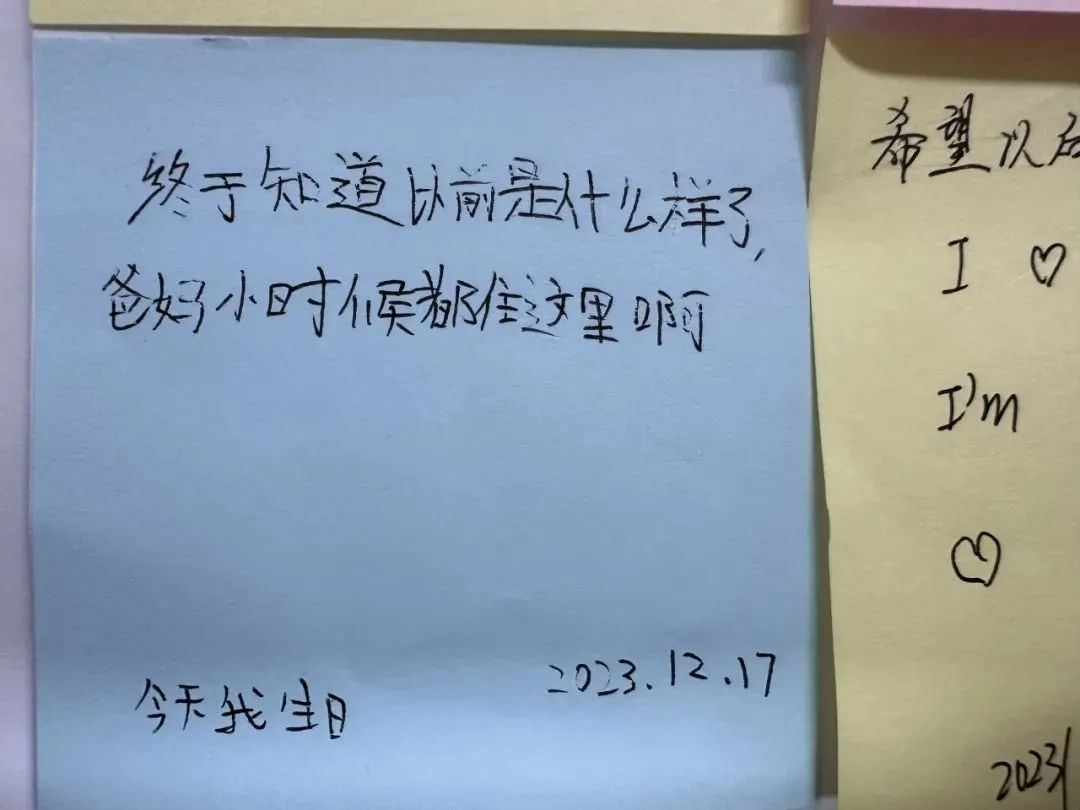 终于知道以前是什么样了,
爸妈小时候都住这里啊
今天我生日
2023.12.17
希望以后
I ♡
I'm
♡
2023